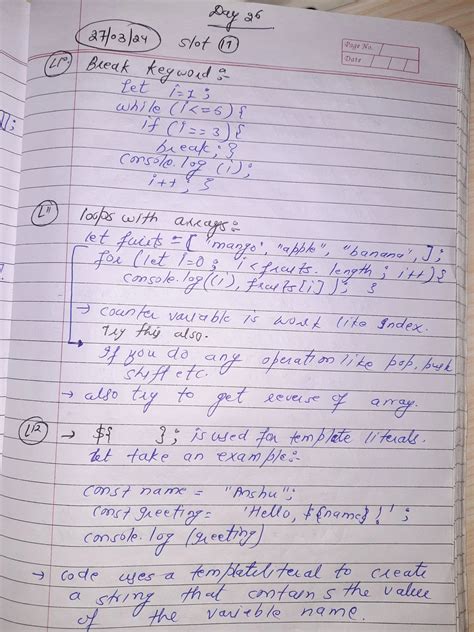 Day 26
27/03/24 Slot (17)
Page No.
Date
L10 Break Keyword :-
let i=1;
while (i<=5) {
if (i==3) {
break; }
console.log (i);
i++; }
L11 loops with arrays:-
let fruits = [ "mango", "apple", "banana", ];
for (let i=0; i<fruits.length; i++) {
console.log((i), fruits[i]); }
→ counter variable is work like Index.
Try this also.
If you do any operation like pop, push
shift etc.
→ also try to get reverse of array.
L12 → ${ }; is used for template literals.
let take an example:-
const name = "Anshu";
const greeting = 'Hello, ${name}!';
console.log (greeting)
→ code uses a template literal to create
a string that contains the value
of the variable name.